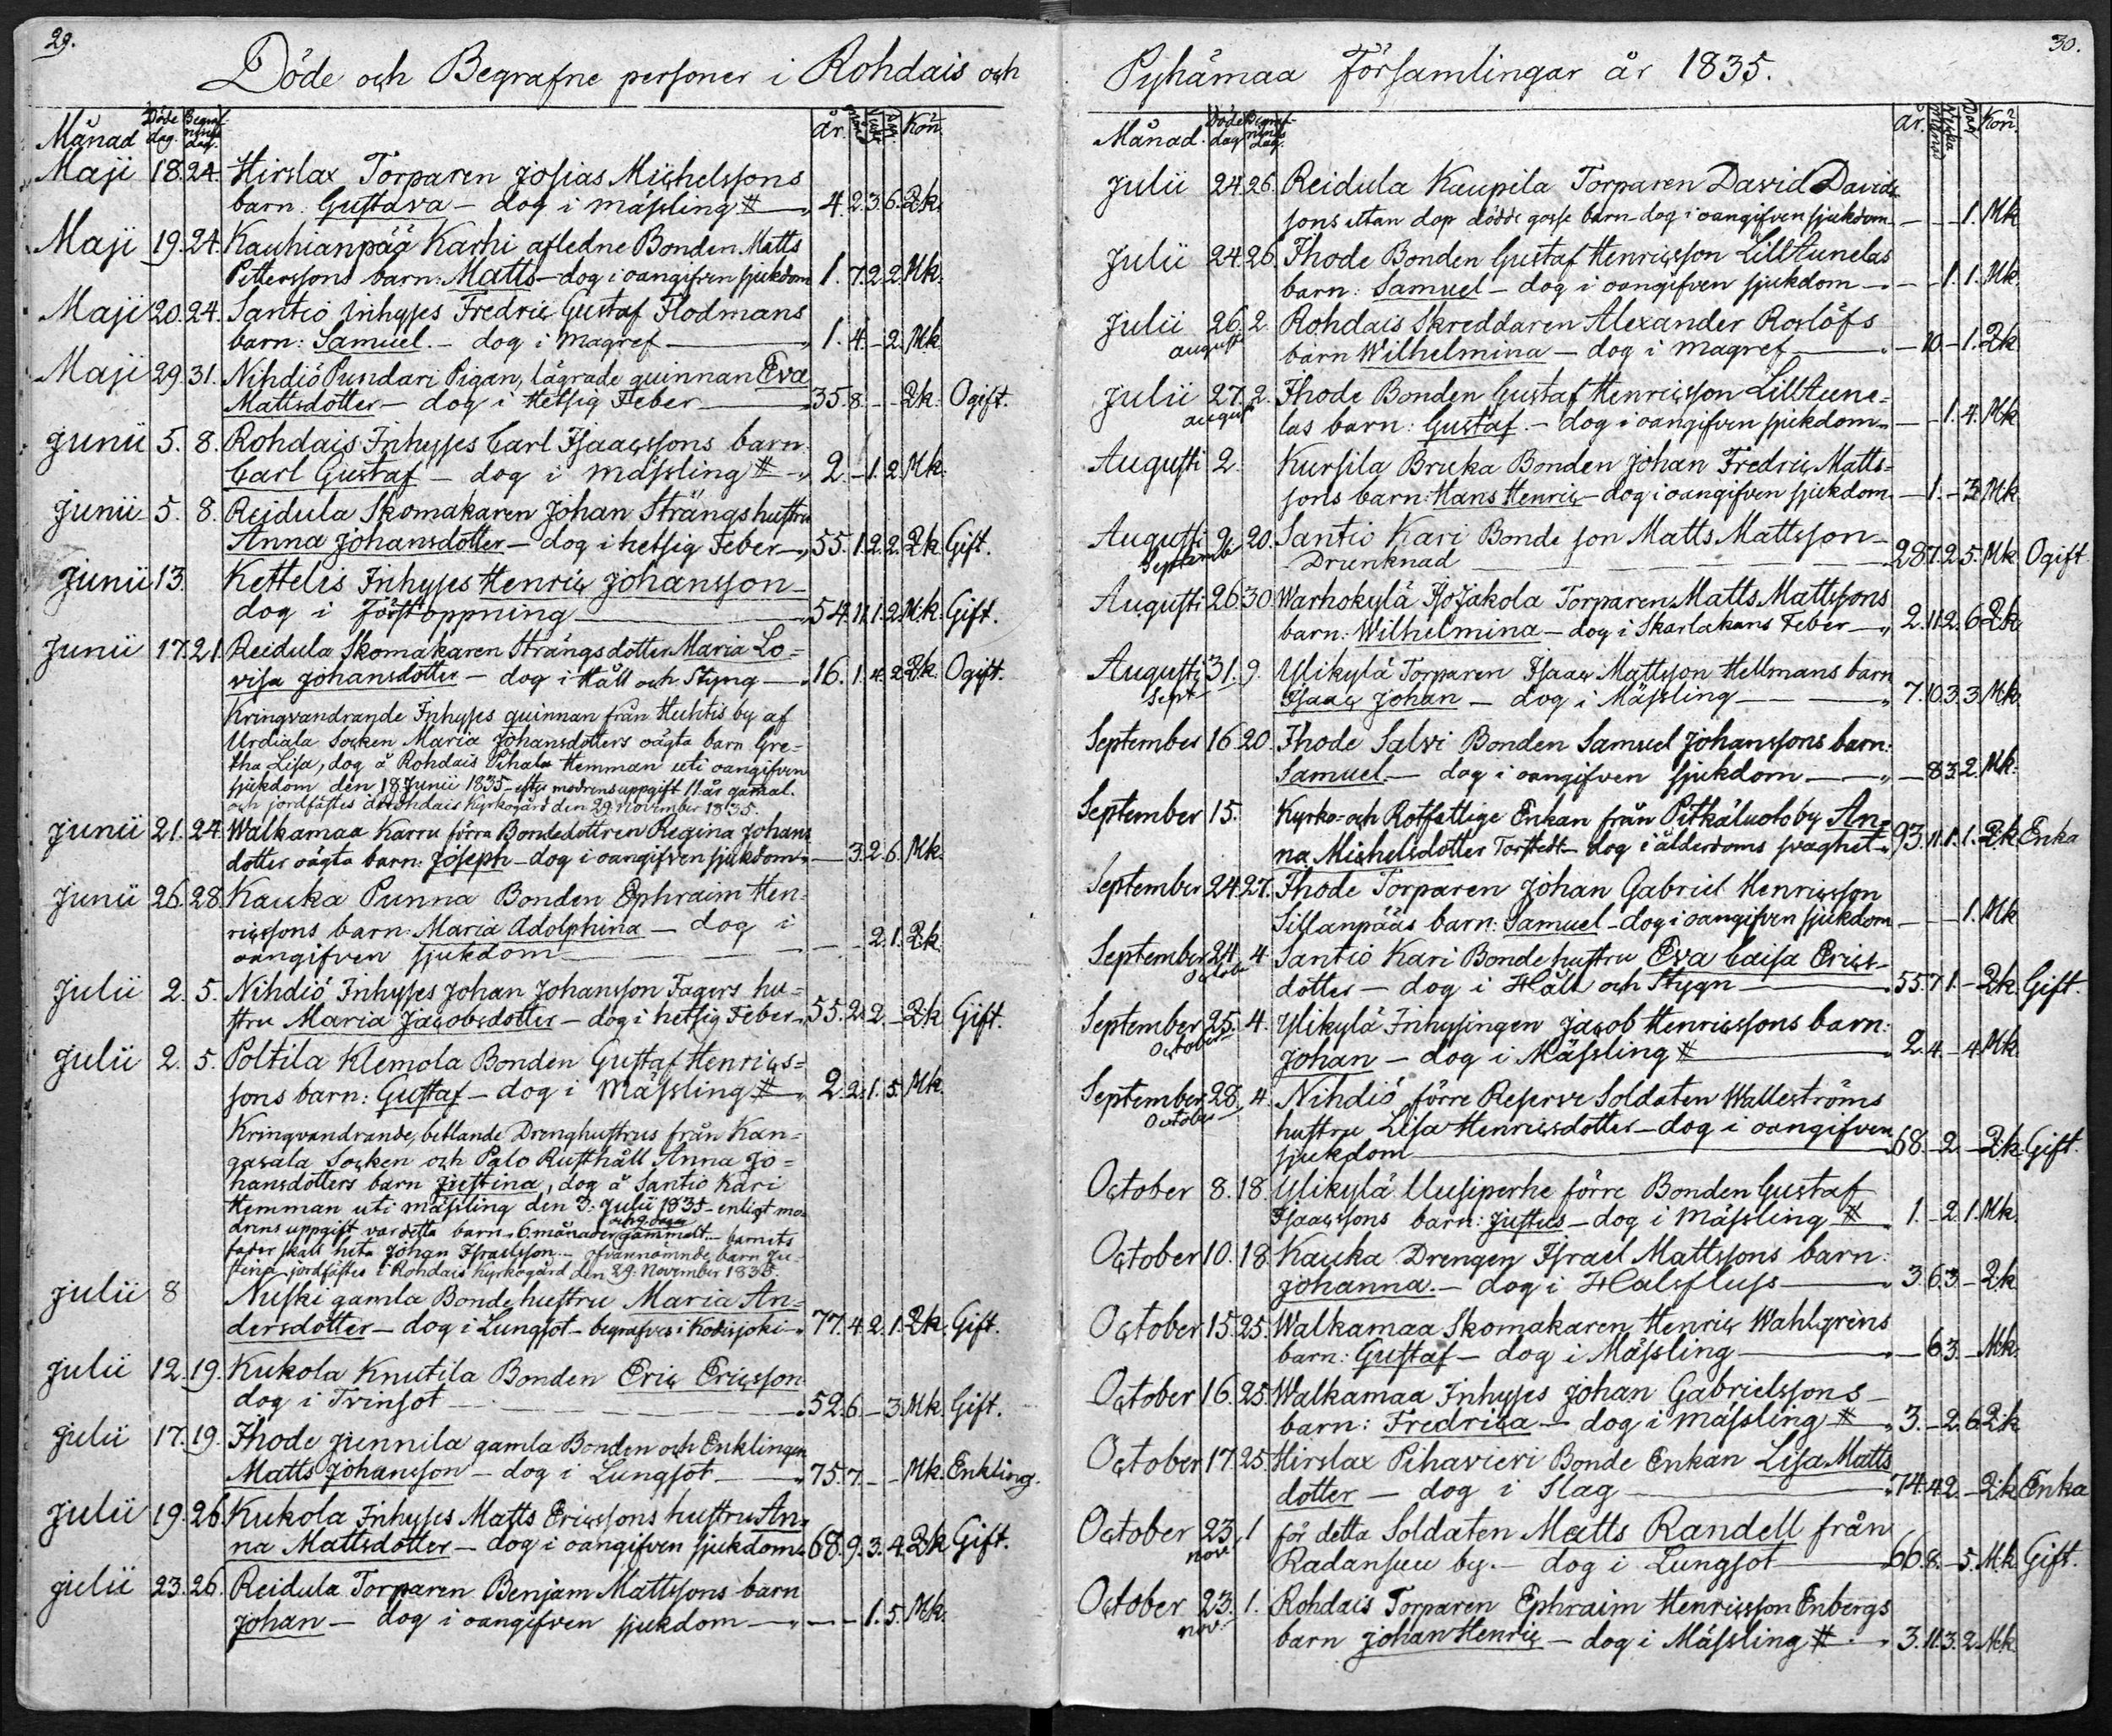 29.
Döde och Begrafne personer i Rohdais och
Månad Döde dag. Begrafnings dag. år. Kön.
Maji 18. 24. Hirslax Torparen Josias Michelssons
barn. Gustava — dog i mässling # — 4. 2. 3. 6. Qk.
Maji 19. 24. Kauhianpää Karhi afledne Bonden Matts
Pettersons barn: Matts — dog i oangifven sjukdom 1. 7. 2. 2. Mk.
Maji 20. 24. Santio Inhyses Fredric Gustaf Flodmans
barn: Samuel. — dog i magref — 1. 4. — 2. Mk.
Maji 29. 31. Nihdiö Pundari Pigan, lägrade quinnan Eva
Mattsdotter — dog i Hetsig Feber — 35. 8. — — Qk. Ogift.
Junii 5. 8. Rohdais Inhyses Carl Isaacssons barn
Carl Gustaf — dog i mässling # — 2. — 1. 2. Mk.
Junii 5. 8. Reidula Skomakaren Johan Strängs hustru
Anna Johansdotter — dog i hetsig Feber — 55. 1. 2. 2. Qk Gift.
Junii 13. Kettelis Inhyses Henric Johansson —
dog i Förstoppning — 54. 11. 1. 2. Mk. Gift.
Junii 17. 21. Reidula Skomakaren Strängs dotter Maria Lo=
visa Johansdotter — dog i Håll och Styng — 16. 1. 4. 2. Qk. Ogift.
Kringvandrande Inhyses quinnan från Huhtis by af
Urdiala Socken Maria Johansdotters oägta barn Gre=
tha Lisa, dog å Rohdais Pihala Hemman uti oangifven
sjukdom den 18 Junii 1835 — efter modrens uppgift 11. år gamal.
och jordfästes å Rohdais Kyrkogård den 29 November 1835.
Junii 21. 24. Walkamaa Karru förra Bondedottren Regina Johans
dotter oägta barn: Joseph — dog i oangifven sjukdom — 3. 2. 6. Mk.
Junii 26. 28. Kauka Punna Bonden Ephraim Hen=
ricssons barn: Maria Adolphina — dog i
oangifven sjukdom — — — 2. 1. Qk.
Julii 2. 5. Nihdiö Inhyses Johan Johansson Fagers hu=
stru Maria Jacobsdotter — dog i hetsig Feber 55. 2. 2. — Qk Gift.
Julii 2. 5. Poltila Klemola Bonden Gustaf Henrics=
sons barn: Gustaf — dog i Mässling # — 2. 2. 1. 5. Mk.
Kringvandrande, betlande Drenghustrus från Kan=
gasala Socken och Palo Rusthåll Anna Jo=
hansdotters barn Justina, dog å Santio Kari
Hemman uti mässling den 3. Julii 1835 — enligt mo=
drens uppgift var detta barn 6. månader och 2 dagar gammalt. — barnets
fader skall heta Johan Israelsson. — ofvannämnde barn Ju=
stina jordfästes i Rohdais Kyrkogård den 29. November 1835.
Julii 8 Nuski gamla Bonde hustru Maria An=
dersdotter — dog i Lungsot — begrafves i Kodisjoki — 77. 4. 2. 1. Qk. Gift.
Julii 12. 19. Kukola Knutila Bonden Eric Ericsson
dog i Tvinsot — 52. 6. — 3. Mk. Gift.
Julii 17. 19. Ihode Junnila gamla Bonden och Enklingen
Matts Johansson — dog i Lungsot — 75. 7. — — Mk. Enkling.
Julii 19. 26. Kukola Inhyses Matts Ericssons hustru An=
na Mattsdotter — dog i oangifven sjukdom 68. 9. 3. 4. Qk Gift.
Julii 23. 26. Reidula Torparen Benjam Mattssons barn
Johan — dog i oangifven sjukdom — — 1. 5. Mk.
30.
Pyhämaa Församlingar år 1835.
Månad. Döde dag Begrafnings dag. år. Månad Vecka Dag Kön.
Julii 24 26. Reidula Kaupila Torparen David Davids
sons utan dop dödde gosse barn dog i oangifven sjukdom — — 1. Mk
Julii 24 26. Ihode Bonden Gustaf Henricsson Lilltunelas
barn: Samuel — dog i oangifven sjukdom — — 1. 1. Mk.
Julii 26. 2. Rohdais Skreddaren Alexander Roslöfs
augusti barn Wilhelmina — dog i magref — 10 — 1. Qk
Julii 27. 2. Ihode Bonden Gustaf Henricsson Lilltune=
august las barn: Gustaf. — dog i oangifven sjukdom — — 1. 4. Mk
Augusti 2. Kursila Bruka Bonden Johan Fredric Matts=
sons barn: Hans Henric — dog i oangifven sjukdom — 1. — 3. Mk
Augusti 9. 20. Santio Kari Bonde son Matts Mattsson —
Septemb Drunknad — 28. 7. 2. 5. Mk Ogift
Augusti 26 30. Warhokylä IsoJakola Torparen Matts Mattssons
barn: Wilhelmina — dog i Skarlakans Feber — 2. 11. 2. 6 Qk
Augusti 31. 9. Ylikylä Torparen Isaac Mattsson Hellmans barn
Sept Isaac Johan — dog i Mässling — 7. 10. 3. 3. Mk
September 16 20. Ihode Salvi Bonden Samuel Johanssons barn:
Samuel. — dog i oangifven sjukdom — — 8. 3. 2. Mk.
September 15. Kyrko- och Rotfattige Enkan från Pitkäluoto by An=
na Michelsdotter Torstedt — dog i ålderdoms svaghet 93. 11. 1. 1. Qk Enka
September 24 27. Ihode Torparen Johan Gabriel Henricsson
Sillanpääs barn: Samuel — dog i oangifven sjukdom — — 1. Mk
September 24. 4 Santio Kari Bonde hustru Eva Caisa Erics=
October dotter — dog i Håll och Stygn — 55. 7 1. — Qk Gift.
September 25. 4. Ylikylä Inhysingen Jacob Henricssons barn:
October Johan — dog i Mässling # — 2. 4. — 4. Mk.
September 28. 4. Nihdiö förre Reserve Soldaten Walleströms
October hustru Lisa Henricsdotter — dog i oangifven
sjukdom — 68. — 2. — Qk Gift.
October 8. 18. Ylikylä Uusiperhe förre Bonden Gustaf
Isaacssons barn: Justus — dog i mässling # 1. — 2. 1. Mk
October 10. 18. Kauka Drengen Israel Mattssons barn:
Johanna. — dog i Halsfluss — 3. 6. 3. — Qk
October 15. 25. Walkamaa Skomakaren Henric Wahlgrens
barn: Gustaf — dog i Mässling — 6 3. — Mk.
October 16. 25. Walkamaa Inhyses Johan Gabrielssons —
barn: Fredrica — dog i mässling # 3. — 2. 6. Qk
October 17 25. Hirslax Pihavieri Bonde Enkan Lisa Matts
dotter — dog i Slag — 74. 4. 2. — Qk Enka
October 23. 1 för detta Soldaten Matts Randell från
nov Radansuu by. — dog i Lungsot — 66. 8. — 5. Mk Gift.
October 23. 1. Rohdais Torparen Ephraim Henricsson Enbergs
nov. barn Johan Henric — dog i Mässling # 3. 11. 3. 2. Mk